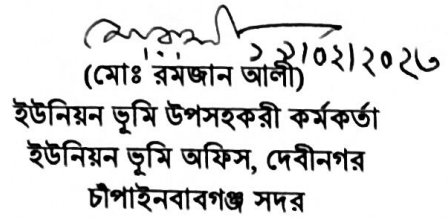 ১২/০২/২০২৩
(মোঃ রমজান আলী)
ইউনিয়ন ভূমি উপসহকরী কর্মকর্তা
ইউনিয়ন ভূমি অফিস, দেবীনগর
চাঁপাইনবাবগঞ্জ সদর